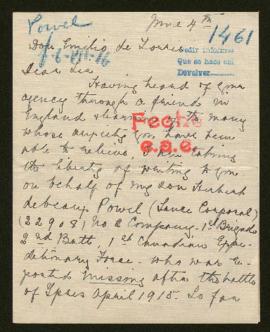 Powel
June 4th
1461
Don Emilio de
Pedir informes
Que se hace en
Devolver
Dear Sir
Having heard of your
agency through a friend in
England & how
many
Fecho
whose anxiety you have been
able to relieve, I am taking
e.g.e.
the liberty of writing to you
on behalf of my son
Powel (Lance Corporal)
(22908) No 2 Company, 1st Brigade
2nd Batt, 1st Canadian Expe-
ditionary Force. who was re-
ported missing after the battle
of Ypres April 1915. So far